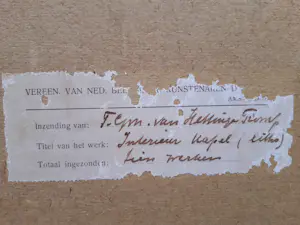 VEREEN. VAN NED. BEE KUNSTENAREN
Inzending van: T. Gm. van Hettinga Tromp
Titel van het werk: Interieur Kapel (litho)
Totaal ingezonden: tien werken